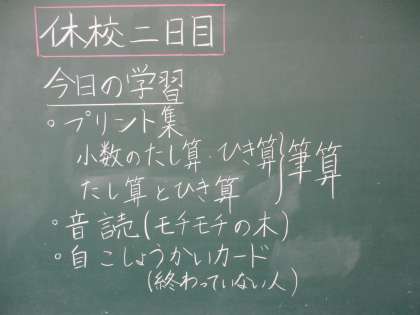 休校二日目
今日の学習
○プリント集
小数のたし算・ひき算
たし算とひき算
}筆算
○音読(モチモチの木)
○自こしょうかいカード
(終わっていない人)